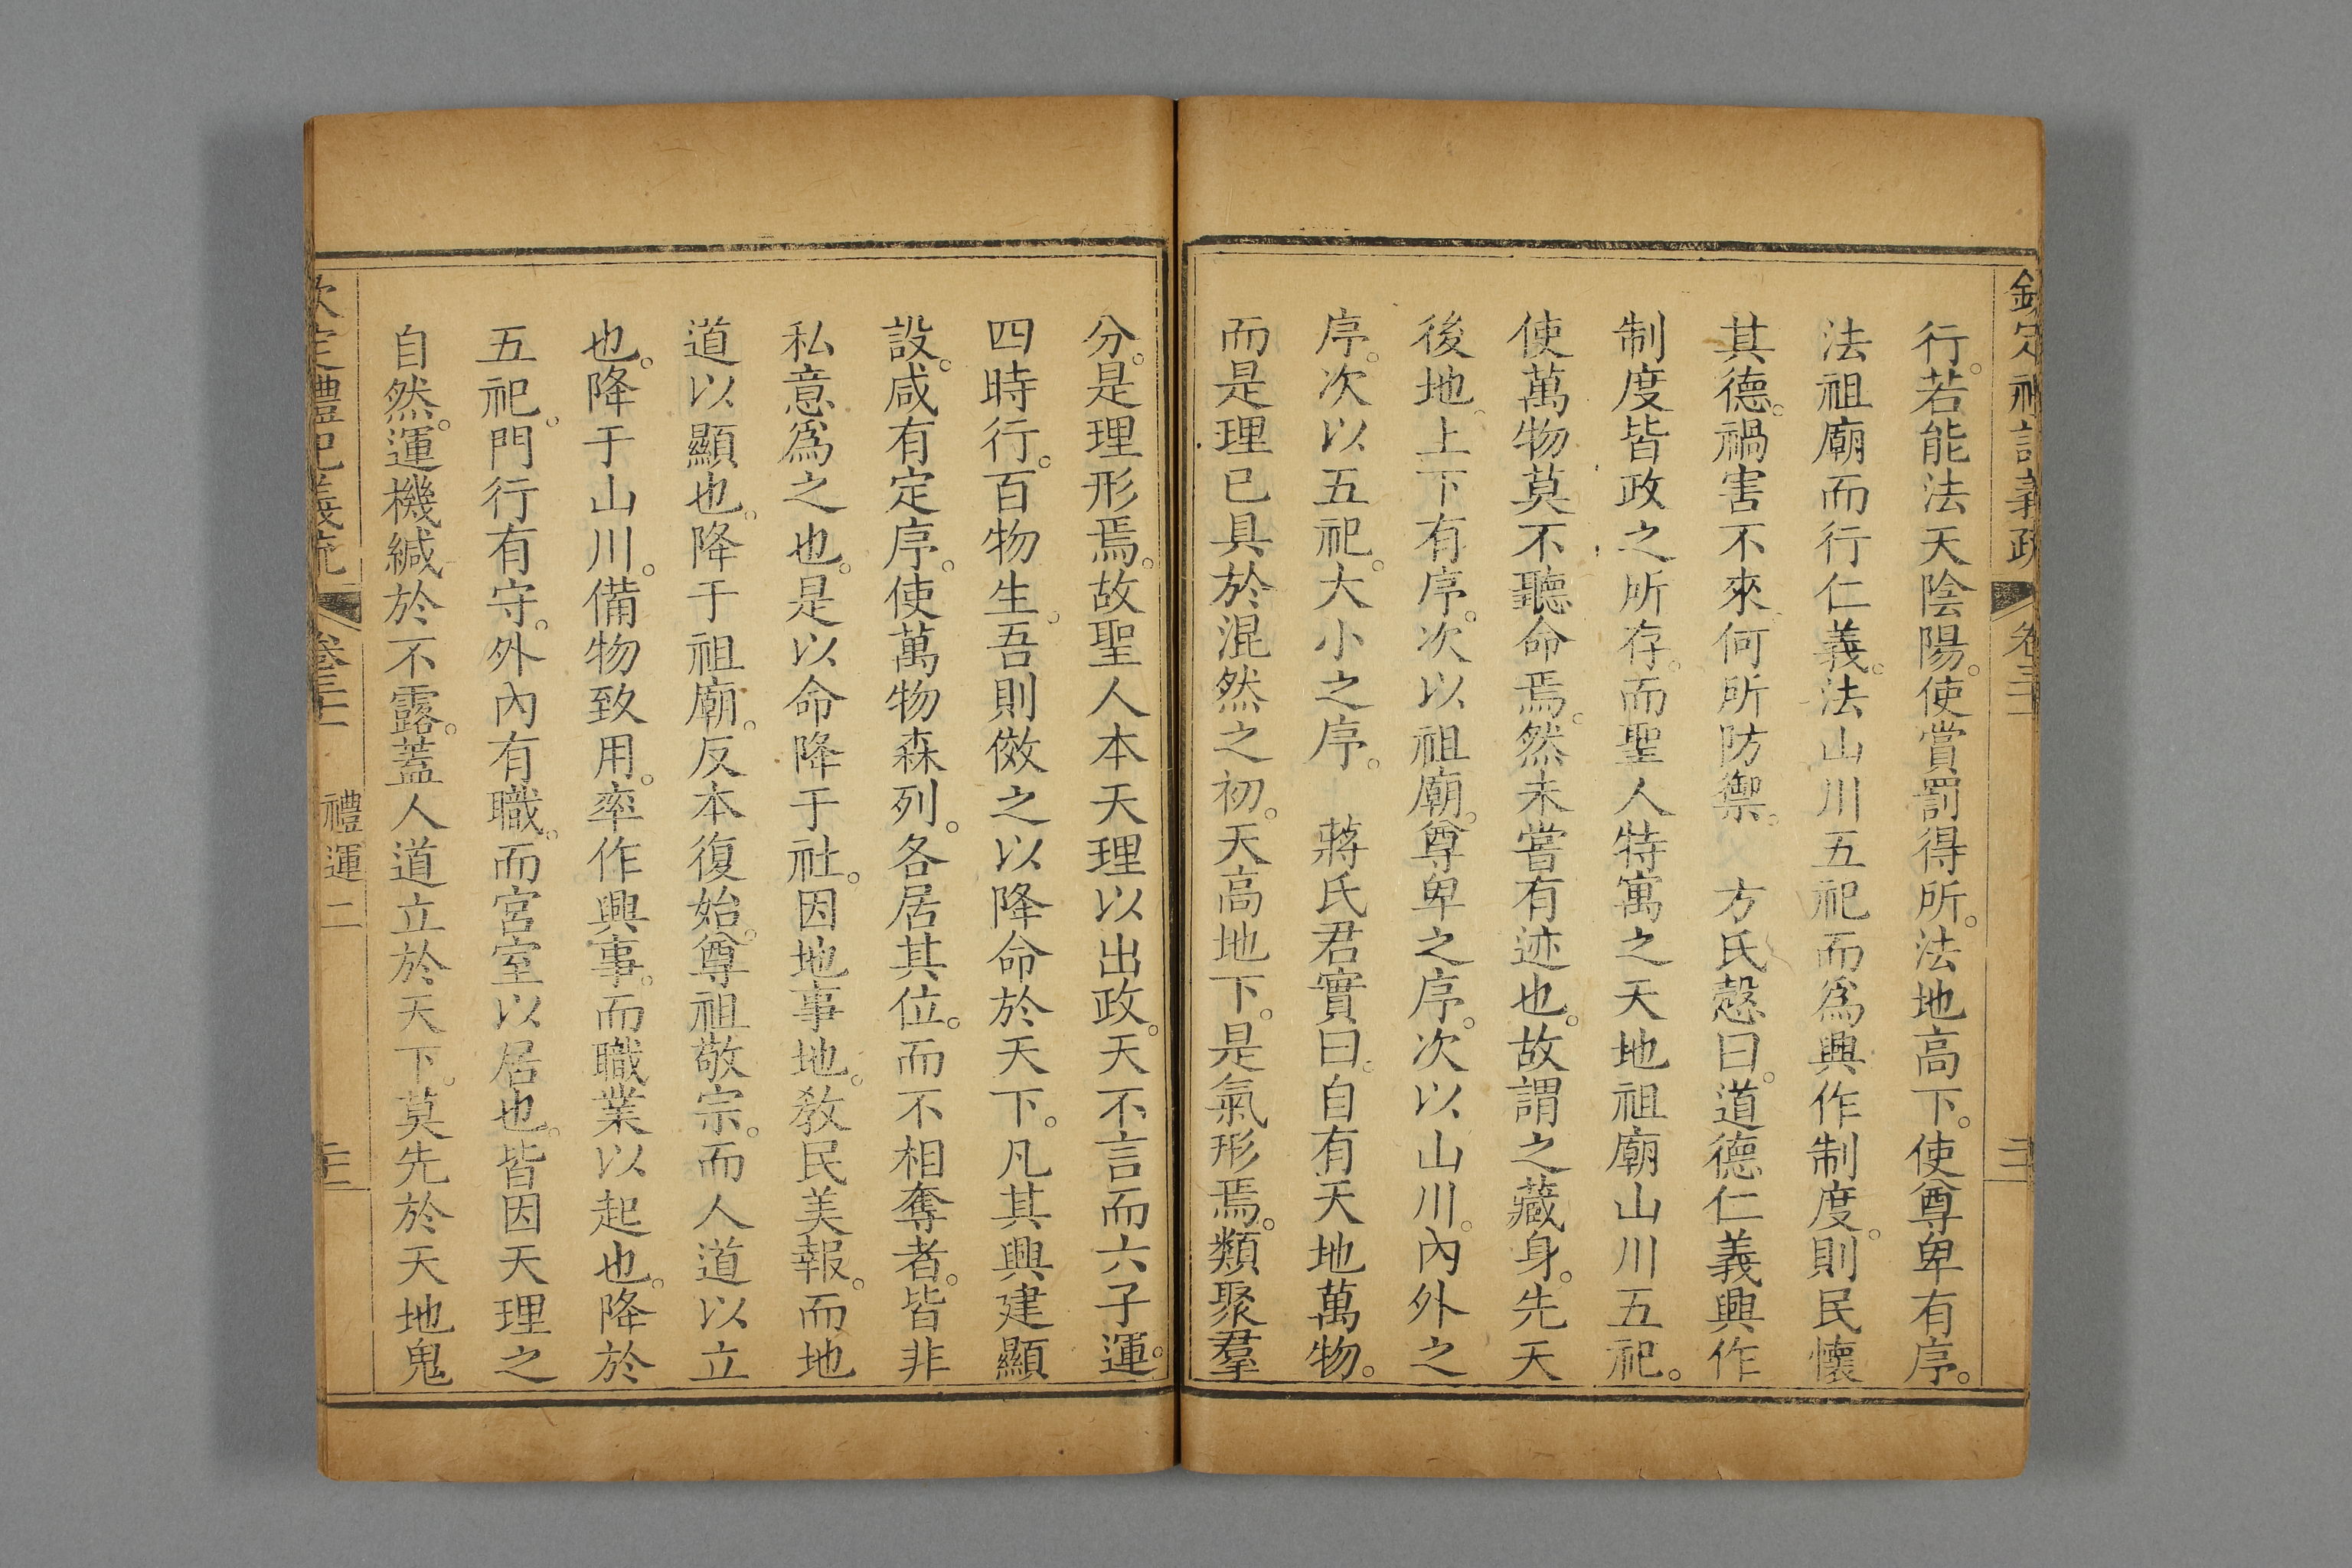 行。若能法天陰陽。使賞罰得所。法地高下。使尊卑有序。
法祖廟而行仁義。法山川五祀而爲興作制度。則民懷
其德。禍害不來。何所防禦。 方氏慤曰。道德仁義興作
制度皆政之所存。而聖人特寓之天地祖廟山川五祀。
使萬物莫不聽命焉。然未嘗有迹也。故謂之藏身。先天
後地。上下有序。次以祖廟。尊卑之序。次以山川。內外之
序。次以五祀。大小之序。 蔣氏君實曰。自有天地萬物。
而是理已具於混然之初。天高地下。是氣形焉。類聚羣
分。是理形焉。故聖人本天理以出政。天不言而六子運。
四時行。百物生。吾則倣之以降命於天下。凡其興建顯
設。咸有定序。使萬物森列。各居其位。而不相奪者。皆非
私意爲之也。是以命降于社。因地事地。敎民美報。而地
道以顯也。降于祖廟。反本復始。尊祖敬宗。而人道以立
也。降于山川。備物致用。率作興事。而職業以起也。降於
五祀。門行有守。外內有職。而宮室以居也。皆因天理之
自然。運機緘於不露。蓋人道立於天下。莫先於天地鬼
欽定禮記義疏 卷三十 禮運二